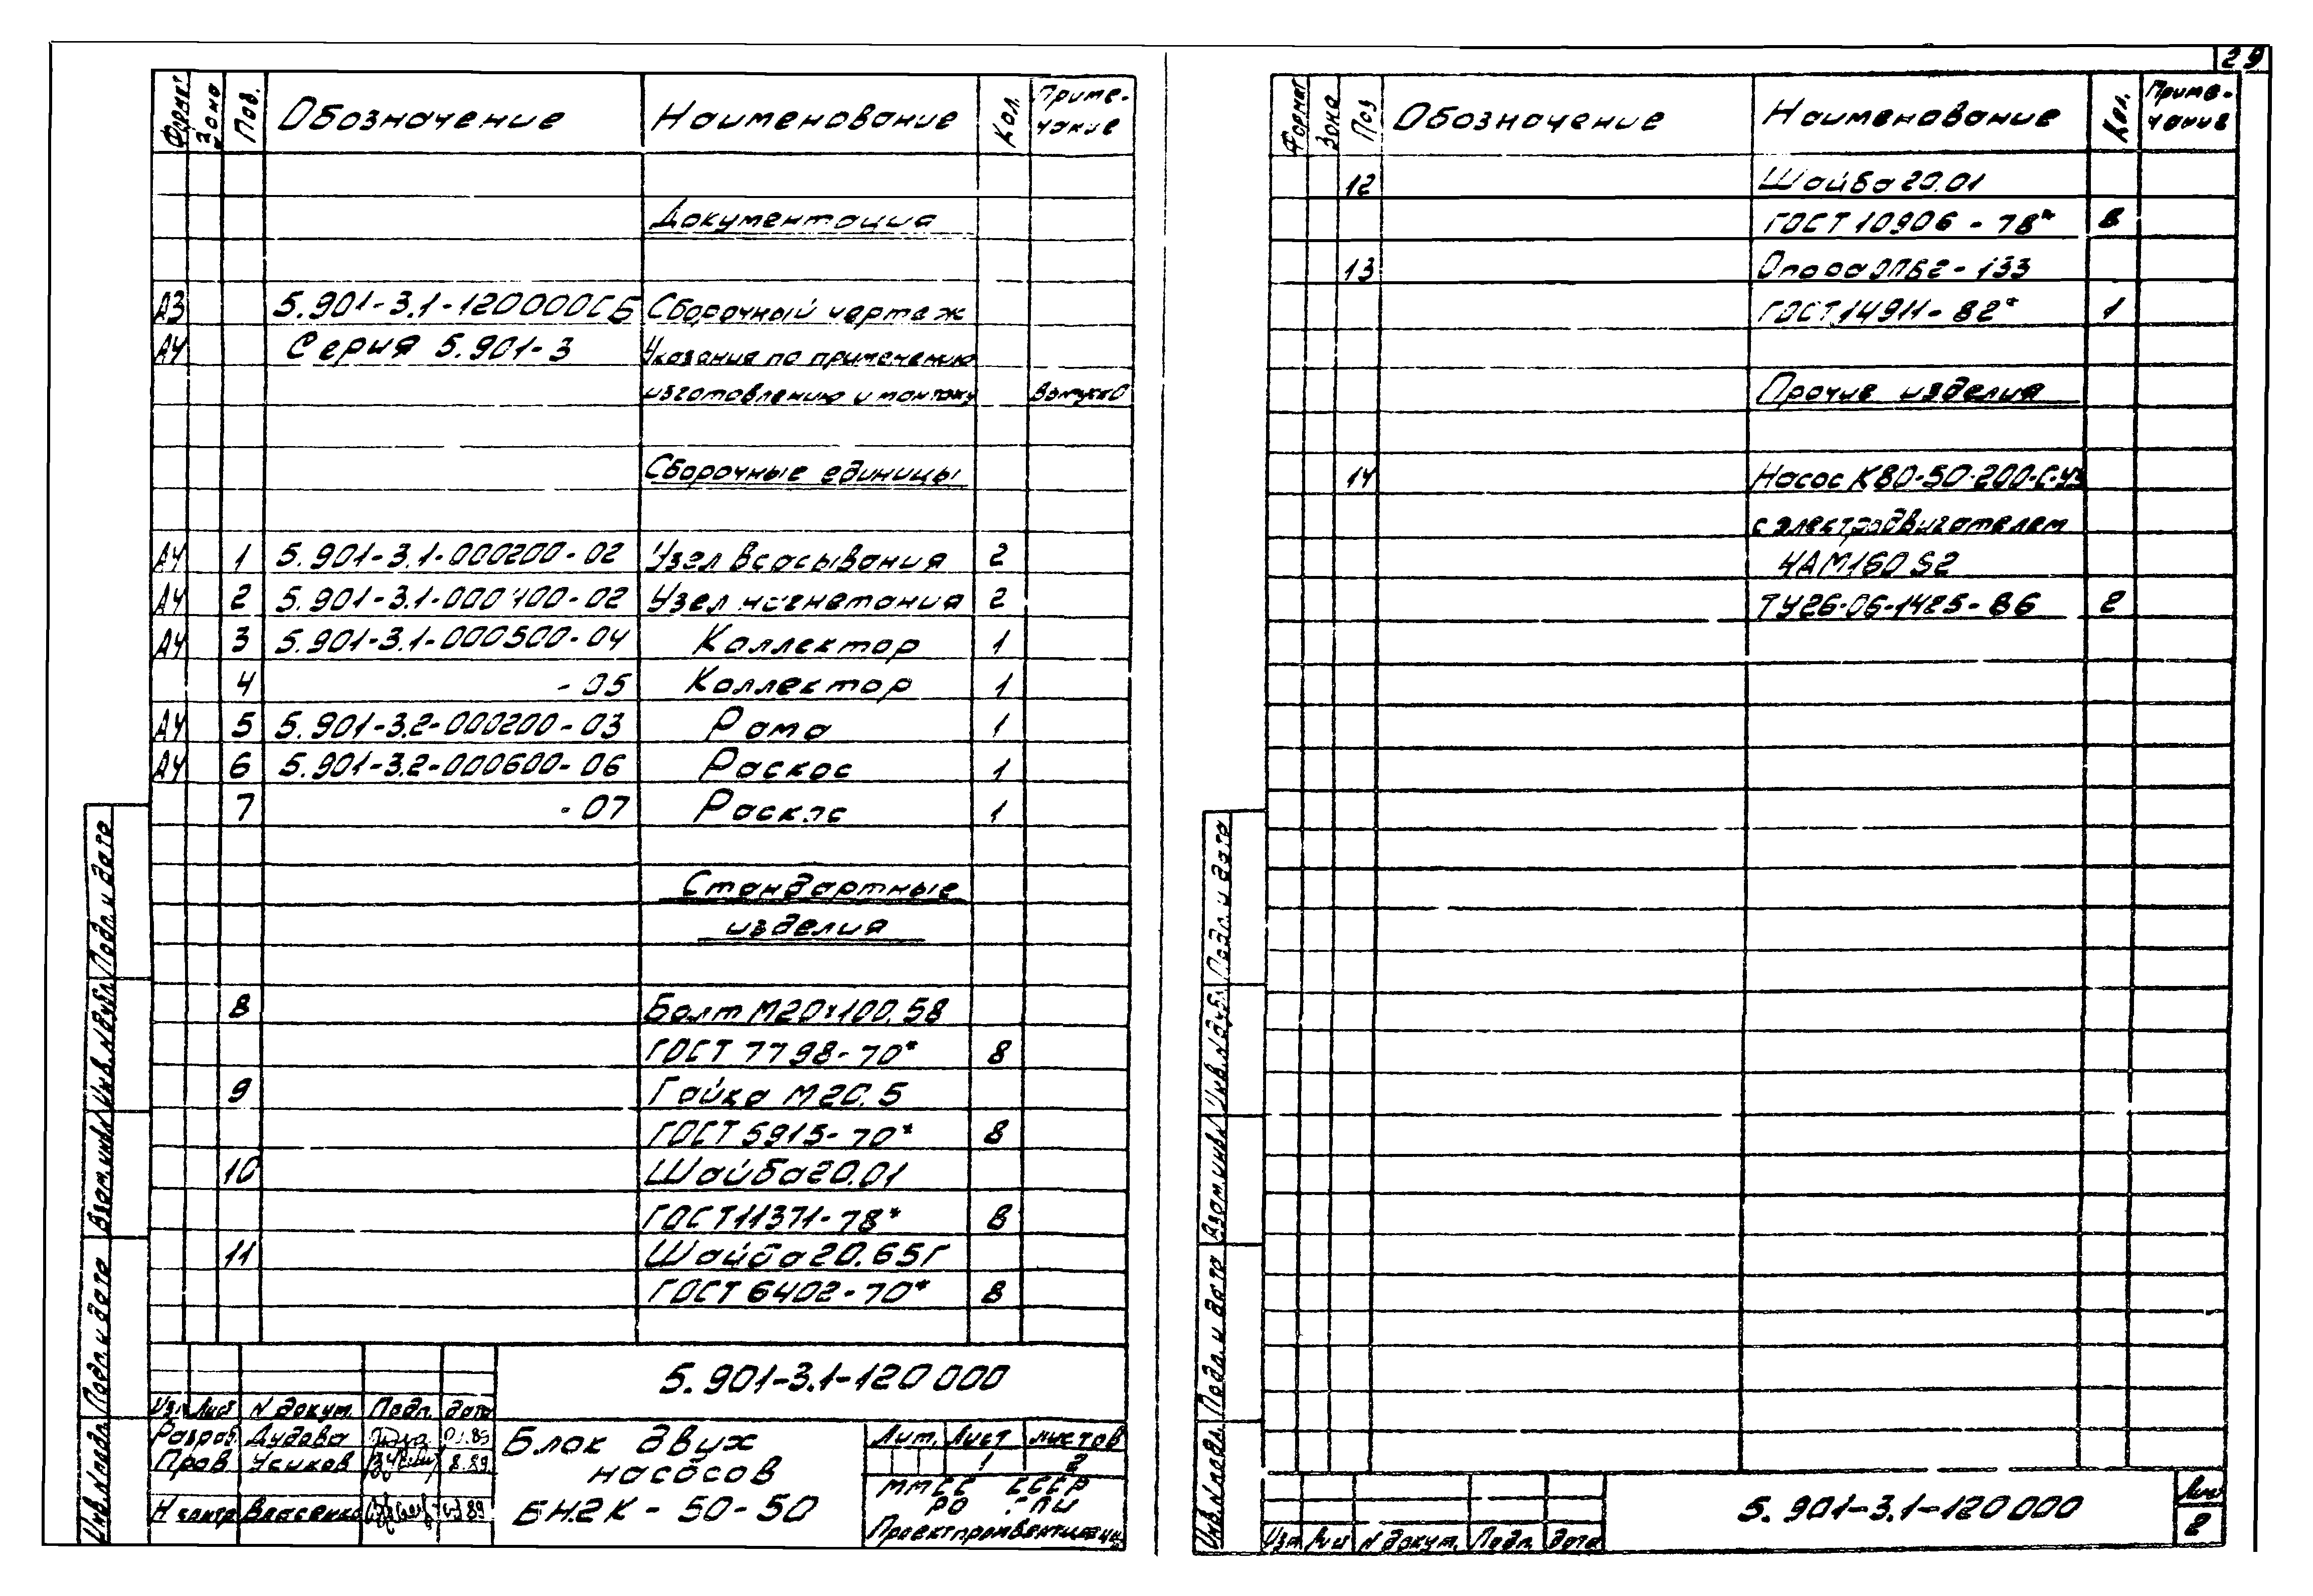 29
Формат Зона Поз. Обозначение Наименование Кол. Примечание
Документация
А3 5.901-3.1-120000СБ Сборочный чертеж
А4 Серия 5.901-3 Указания по применению
изготовлению и монтажу Выпуск 0
Сборочные единицы
А4 1 5.901-3.1-000200-02 Узел всасывания 2
А4 2 5.901-3.1-000400-02 Узел нагнетания 2
А4 3 5.901-3.1-000500-04 Коллектор 1
4 -05 Коллектор 1
А4 5 5.901-3.2-000200-03 Рама 1
А4 6 5.901-3.2-000600-06 Раскос 1
7 -07 Раскос 1
Стандартные
изделия
8 Болт М20×100.58
ГОСТ 7798-70* 8
9 Гайка М20.5
ГОСТ 5915-70* 8
10 Шайба 20.01
ГОСТ 11371-78* 8
11 Шайба 20.65Г
ГОСТ 6402-70* 8
Инв. № подл. Подп. и дата Взам. инв. № Инв. № дубл. Подп. и дата
5.901-3.1-120000
Изм Лист № докум. Подп. Дата
Разраб. Дудова 89
Пров. Усиков 8.89
Н контр Власенко 89
Блок двух
насосов
БН2К-50-50
Лит. Лист Листов
1 2
ММСС СССР
РО ГПИ
Проектпромвентиляция
Формат Зона Поз Обозначение Наименование Кол. Примечание
12 Шайба 20.01
ГОСТ 10906-78* 8
13 Опора ОПБ2-133
ГОСТ 14911-82* 1
Прочие изделия
14 Насос К80-50-200-С-У3
с электродвигателем
4АМ160S2
ТУ26-06-1425-86 2
Инв. № подл. Подп. и дата Взам. инв. № Инв. № дубл. Подп. и дата
Изм Лист № докум. Подп. Дата
5.901-3.1-120000
Лист
2